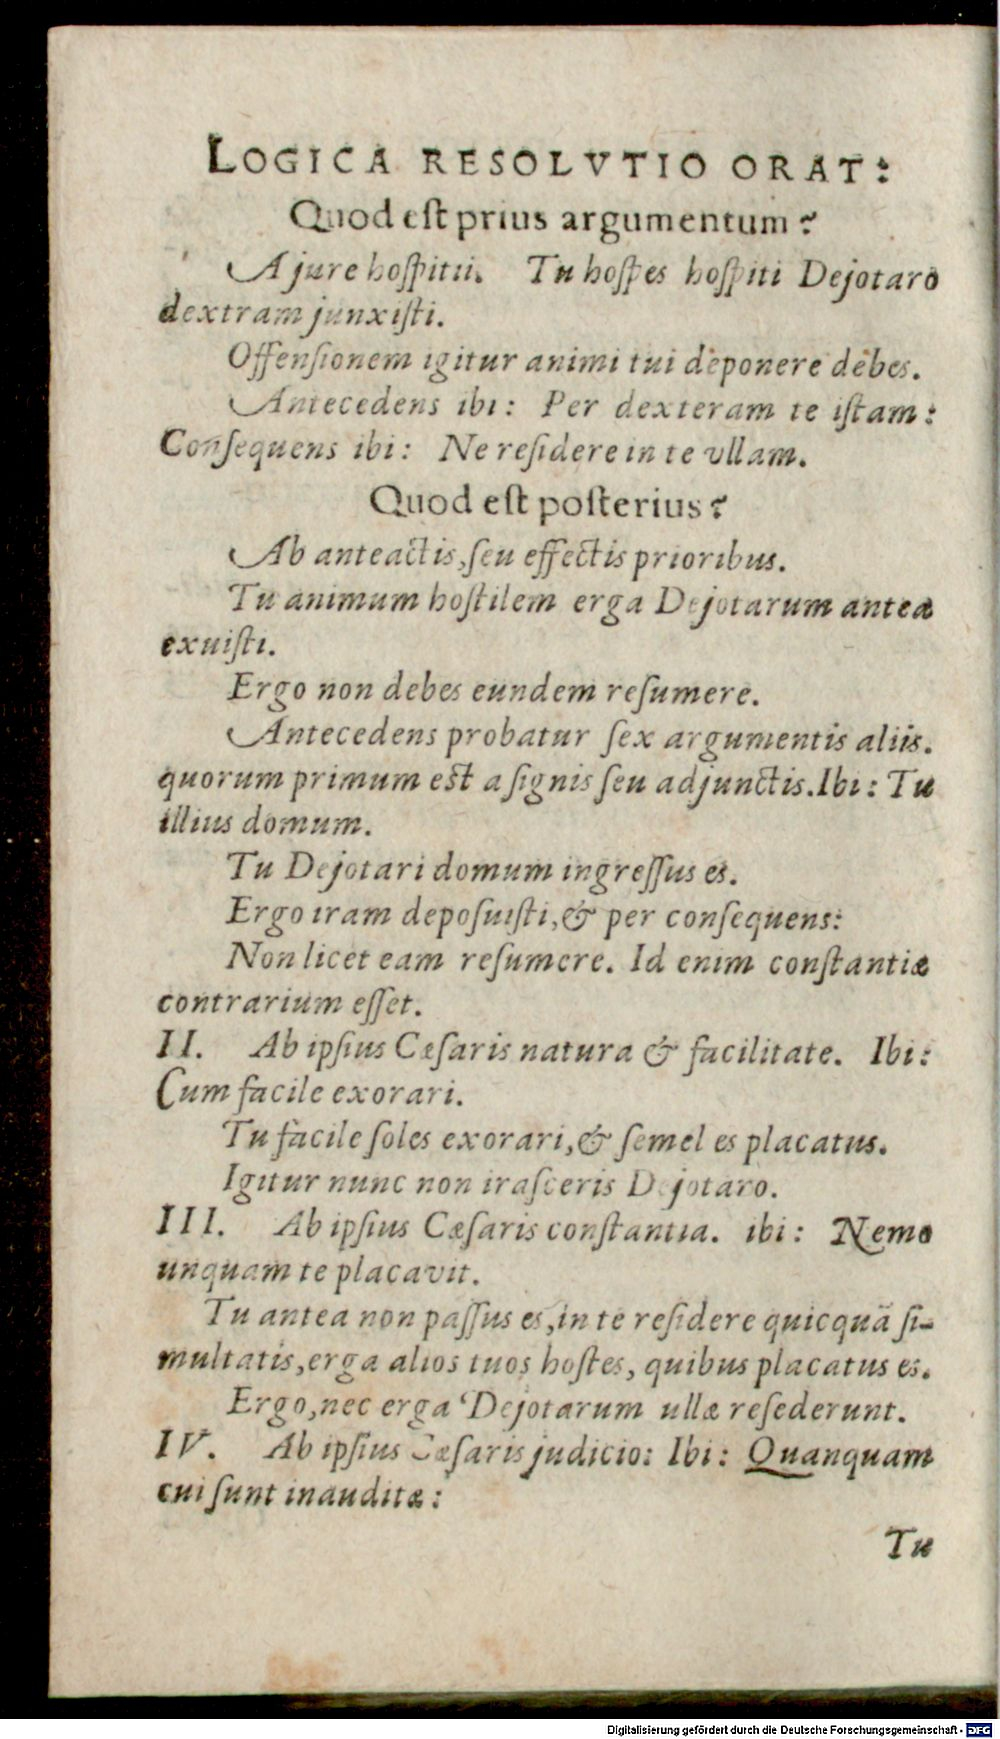 LOGICA RESOLVTIO ORAT:
Quod est prius argumentum?
A jure hospitii. Tu hospes hospiti Dejotaro
dextram junxisti.
Offensionem igitur animi tui deponere debes.
Antecedens ibi: Per dexteram te istam:
Consequens ibi: Ne residere in te vllam.
Quod est posterius?
Ab anteactis, seu effectis prioribus.
Tu animum hostilem erga Dejotarum antea
exuisti.
Ergo non debes eundem resumere.
Antecedens probatur sex argumentis aliis.
quorum primum est a signis seu adjunctis. Ibi: Tu
illius domum.
Tu Dejotari domum ingressus es.
Ergo iram deposuisti, & per consequens:
Non licet eam resumere. Id enim constantiæ
contrarium esset.
II. Ab ipsius Cæsaris natura & facilitate. Ibi:
Cum facile exorari.
Tu facile soles exorari, & semel es placatus.
Igitur nunc non irasceris Dejotaro.
III. Ab ipsius Cæsaris constantia. ibi: Nemo
unquam te placavit.
Tu antea non passus es, in te residere quicquã si-
multatis, erga alios tuos hostes, quibus placatus es.
Ergo, nec erga Dejotarum ullæ resederunt.
IV. Ab ipsius Cæsaris judicio: Ibi: Quanquam
cui sunt inauditæ:
Tu
Digitalisierung gefördert durch die Deutsche Forschungsgemeinschaft - DFG